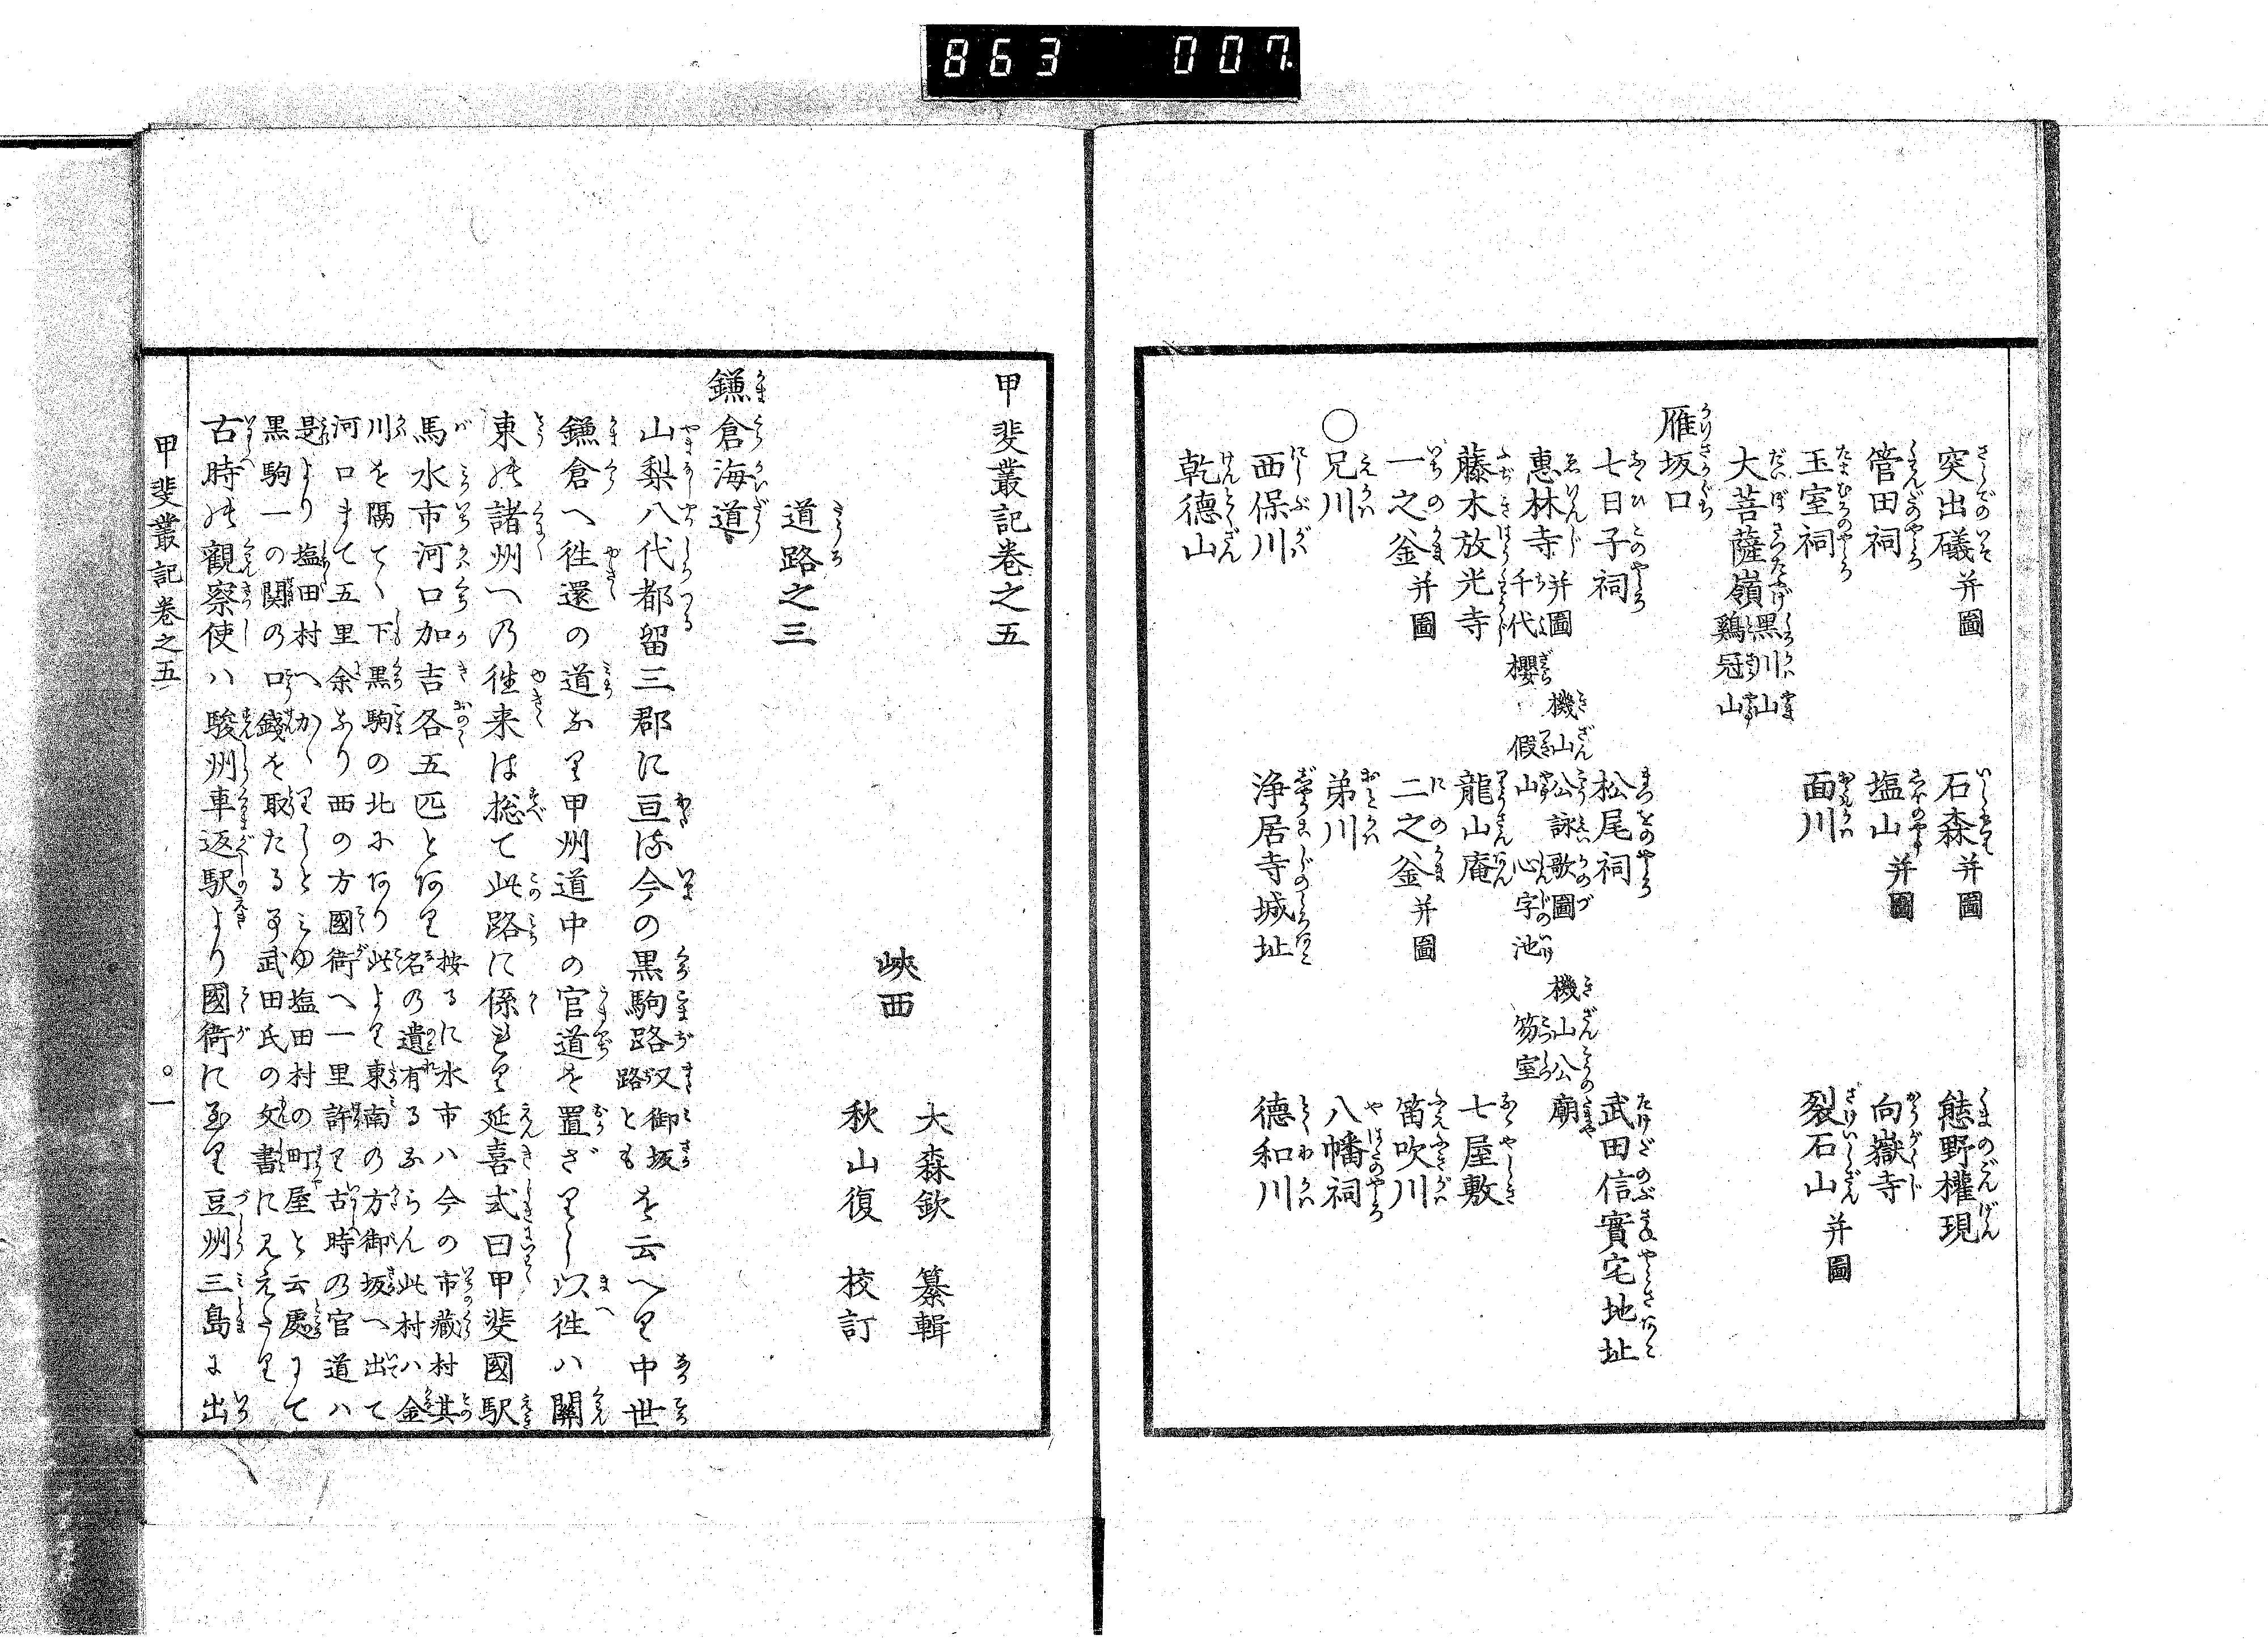 863 007
突出礒并圖 石森并圖 熊野權現
管田祠 塩山并圖 向嶽寺
玉室祠 面川 裂石山并圖
大菩薩嶺 黒川山 鶏冠山
雁坂口
七日子祠 松尾祠 武田信實宅地址
惠林寺并圖 機山公詠歌圖 機山公廟 千代櫻 假山 心字池 笏室
藤木放光寺 龍山庵 七屋敷
一之釜并圖 二之釜并圖 笛吹川
〇兄川 弟川 八幡祠
西保川 浄居寺城址 德和川
乾德山
甲斐叢記巻之五
大森欽 纂輯
峽西
秋山復 校訂
道路之三
鎌倉海道
山梨八代都留三郡に亘る今の黒駒路又御坂路ともを云へり中世
鎌倉へ徃還の道なり甲州道中の官道を置ざりし以徃ハ關
東の諸州への徃来は総て此路に係れり延喜式曰甲斐國駅
馬水市河口加吉各五匹とあり按るに水市ハ今の市藏村其
名の遺有るならん此村ハ金
川を隔てゝ下黒駒の北にあり此より東南の方御坂へ出て
河口まて五里余なり西の方國衙へ一里許り古時の官道ハ
是より塩田村へかゝりしとみゆ塩田村の町屋と云處にて
黒駒一の関の口錢を取たる事武田氏の文書に見えたり
古時の觀察使ハ駿州車返駅より國衙に至り豆州三島に出
甲斐叢記巻之五 〇一